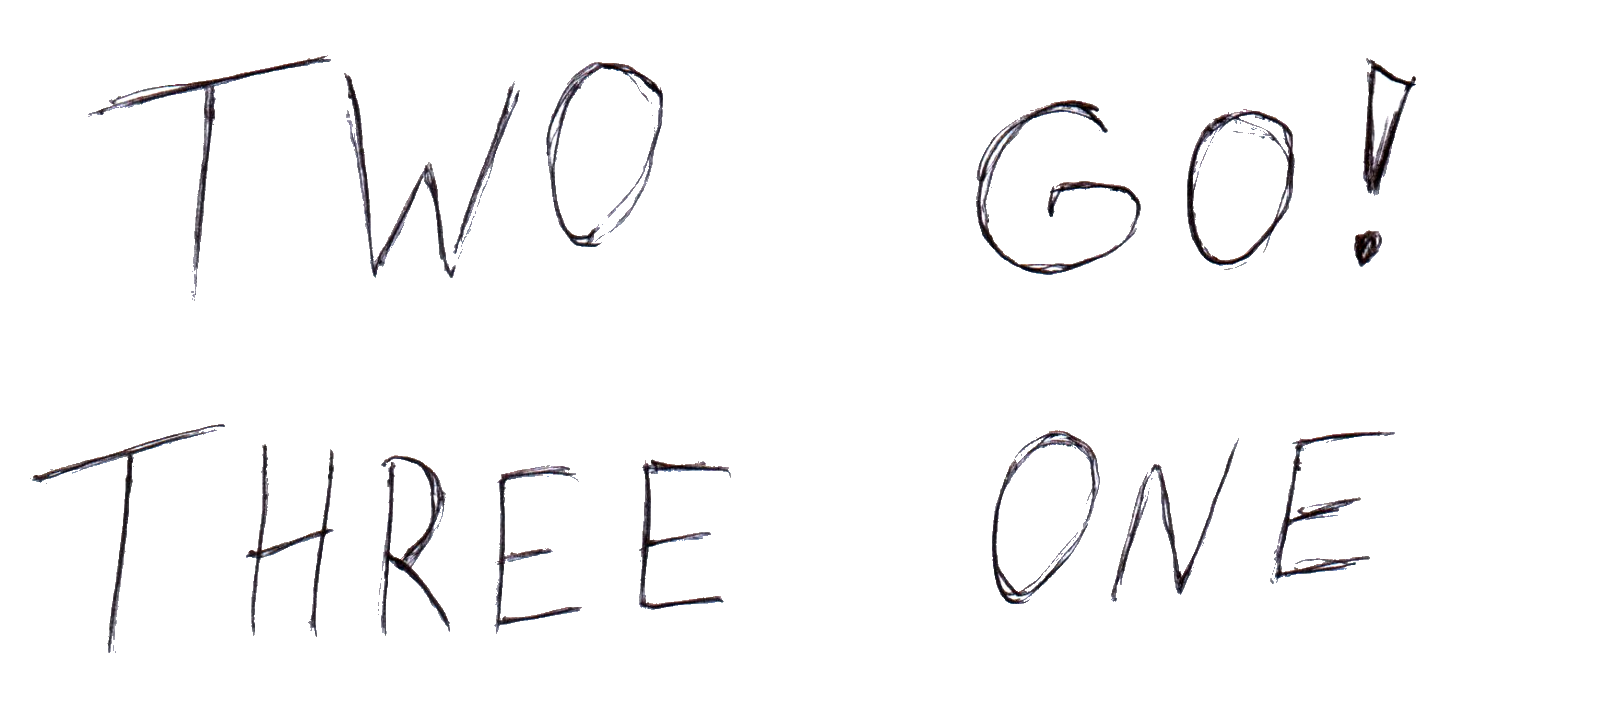 TWO GO!
THREE ONE